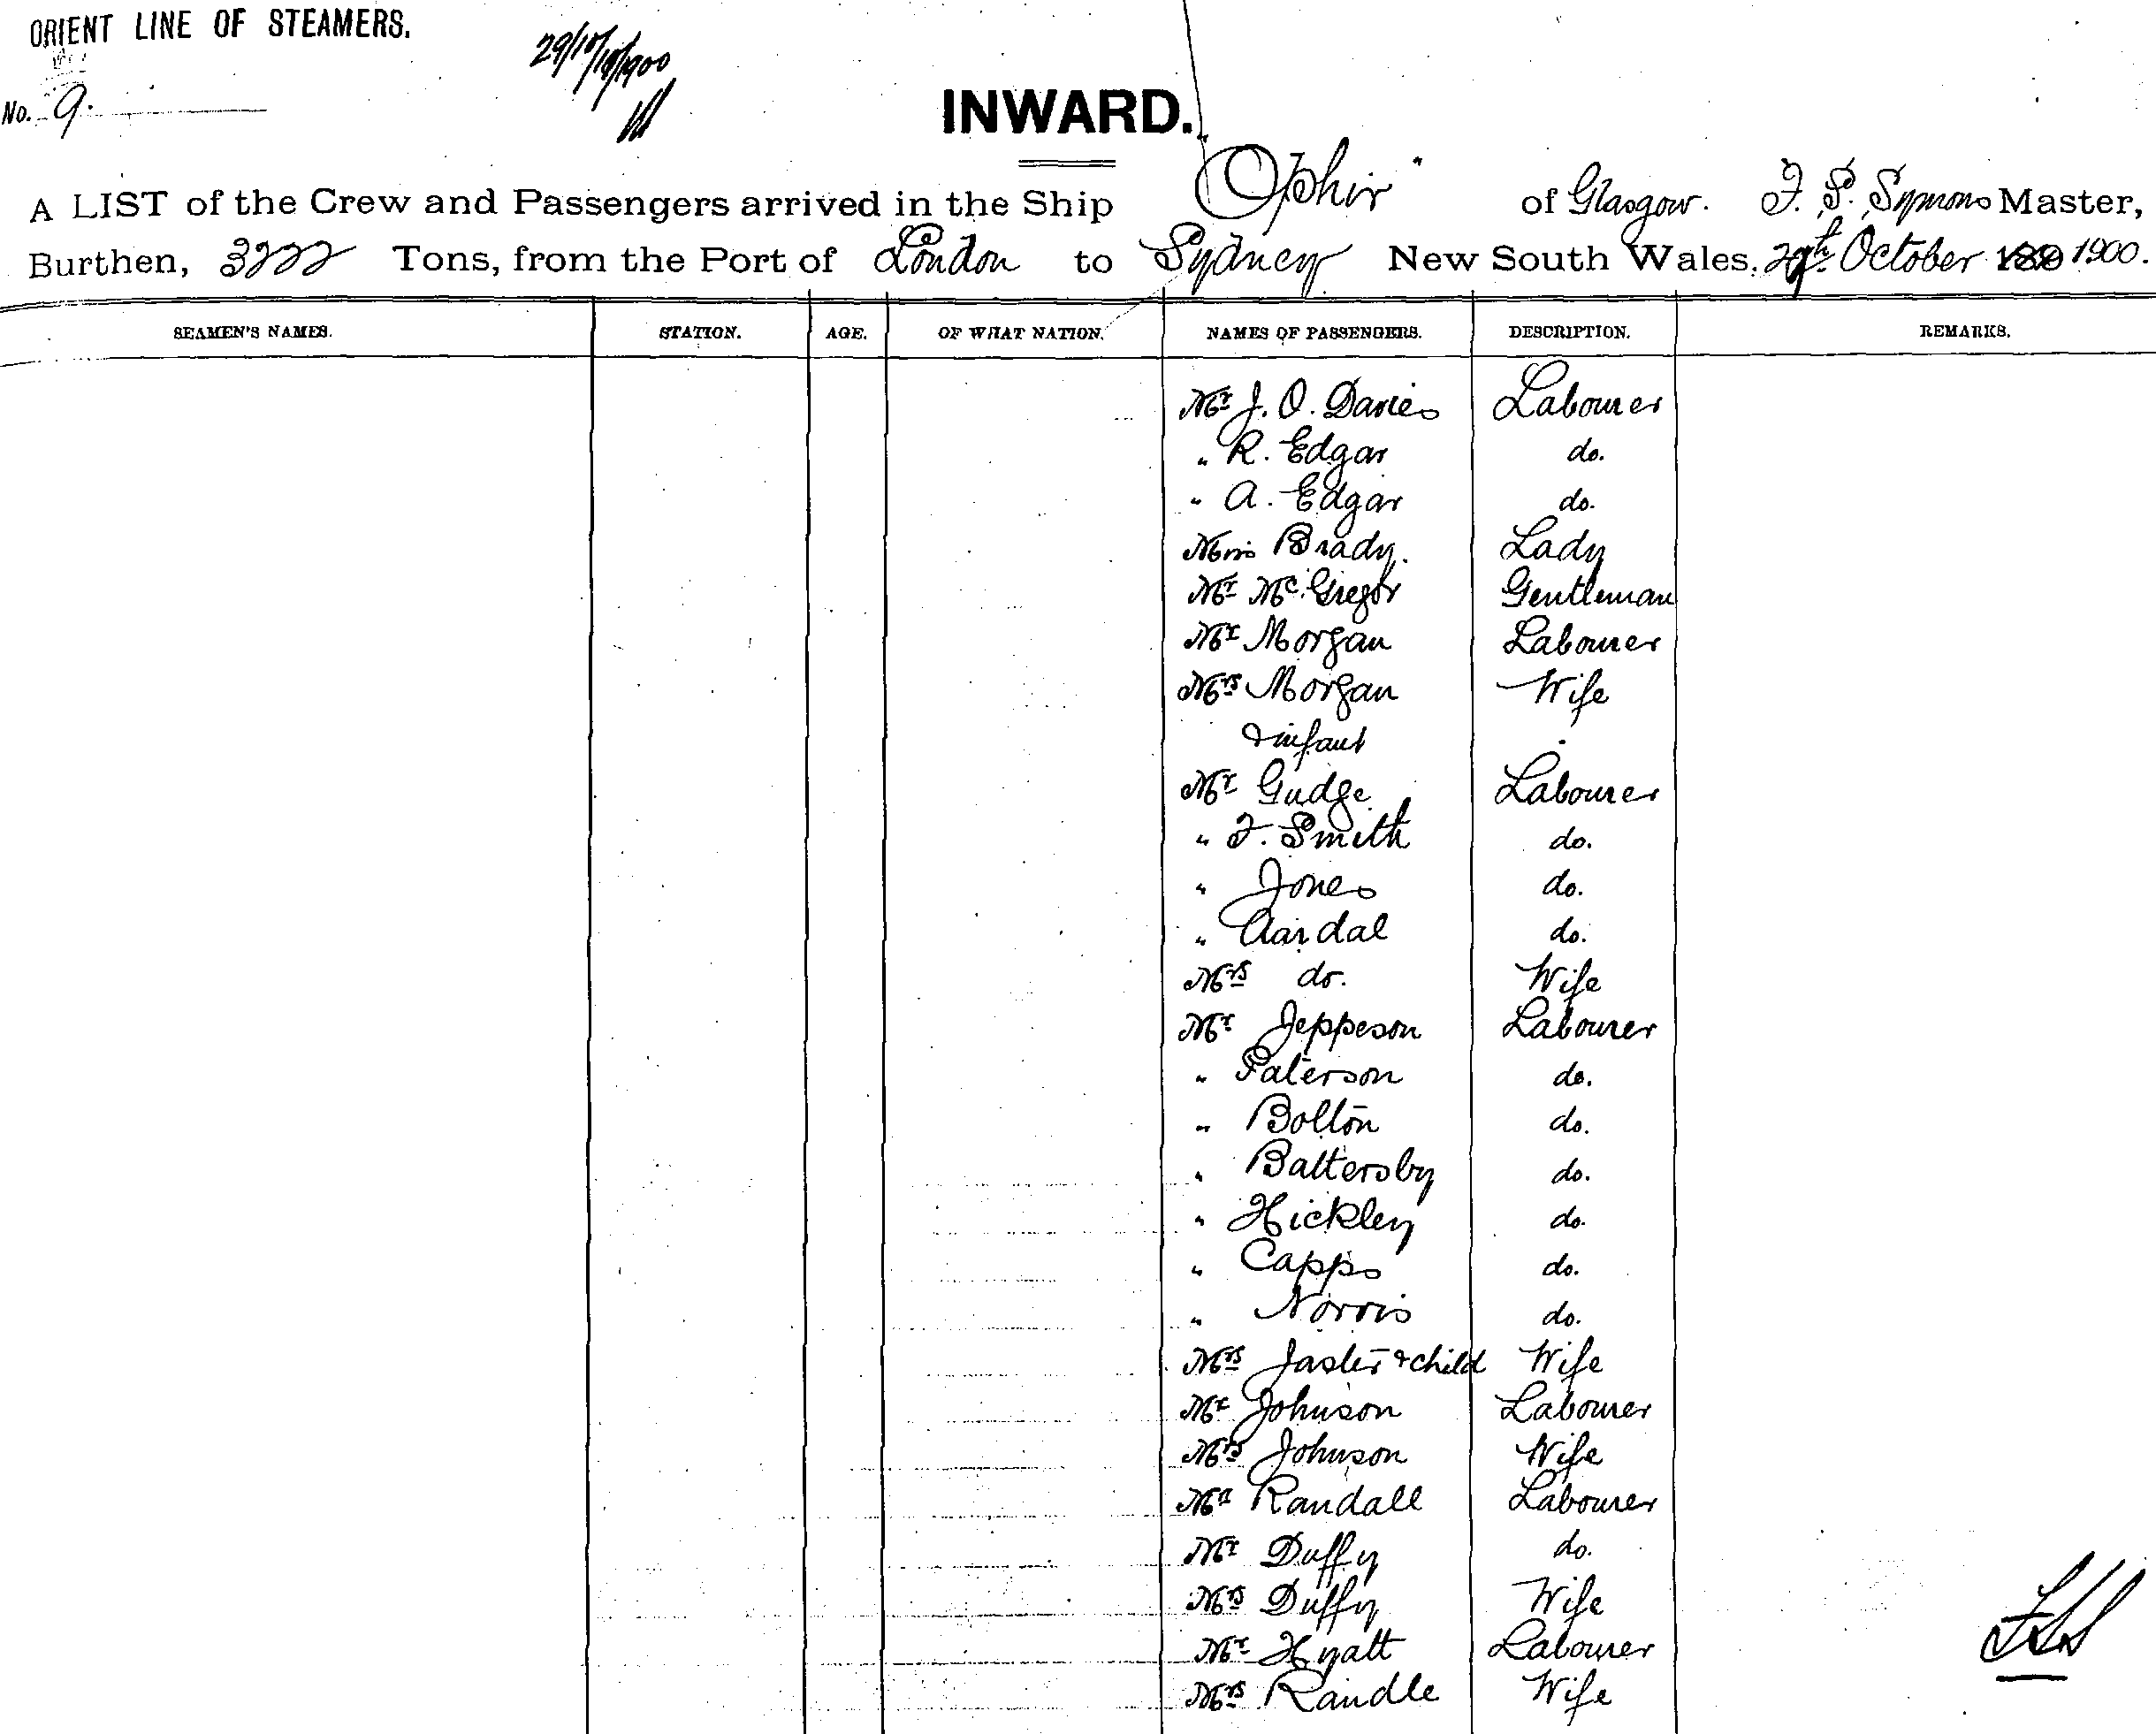 ORIENT LINE OF STEAMERS.
29/10/1900
No. 9.
INWARD.
A LIST of the Crew and Passengers arrived in the Ship "Ophir" of Glasgow. F. S. Symons Master,
Burthen, 3222 Tons, from the Port of London to Sydney New South Wales, 29th October 189 1900.
SEAMEN'S NAMES. STATION. AGE. OF WHAT NATION. NAMES OF PASSENGERS. DESCRIPTION. REMARKS.
Mr J. O. Davies Labourer
" R. Edgar do.
" A. Edgar do.
Miss Brady. Lady
Mr McGregor Gentleman
Mr Morgan Labourer
Mrs Morgan Wife
& infant
Mr Gudge Labourer
" F. Smith do.
" Jones do.
" Aardal do.
Mrs do. Wife
Mr Jeppeson Labourer
" Paterson do.
" Bolton do.
" Battersby do.
" Hickley do.
" Capps do.
" Norris do.
Mrs Jaster & child Wife
Mr Johnson Labourer
Mrs Johnson Wife
Mr Randall Labourer
Mr Duffy do.
Mrs Duffy Wife
Mr Hyatt Labourer
Mrs Randle Wife